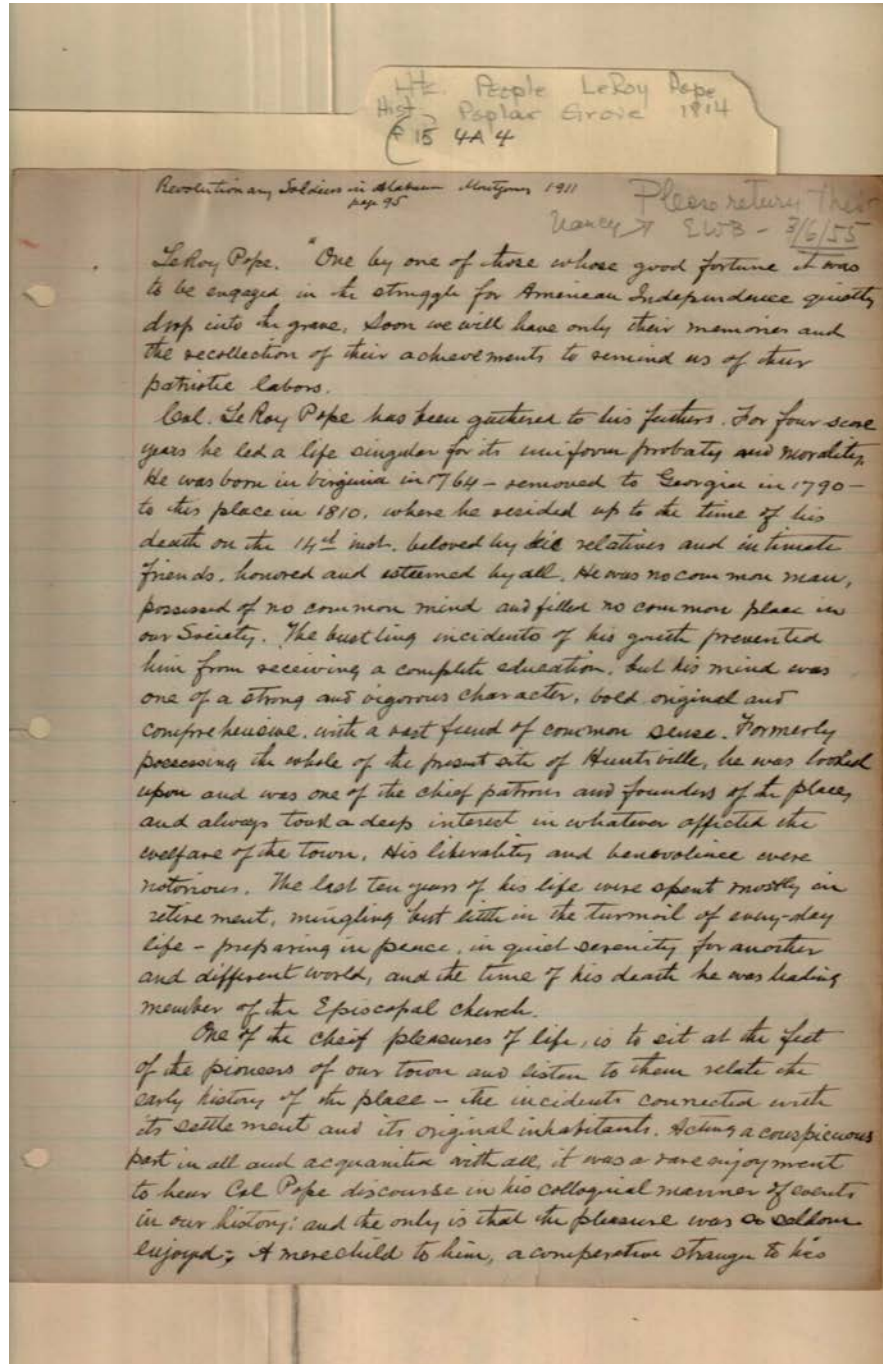 Hte. People LeRoy Pope
Hist. Poplar Grove 1814
P 15 4A 4
Revolutionary Soldiers in Alabama Montgomery 1911
page 95
Please return this
Nancy → EWB - 3/6/55
LeRoy Pope. "One by one of those whose good fortune it was
to be engaged in the struggle for American Independence quietly
drop into the grave, Soon we will have only their memories and
the recollection of their achievements to remind us of their
patriotic labors.
Col. LeRoy Pope has been gathered to his fathers. For four score
years he led a life singular for its uniform probaty and morality,
He was born in Virginia in 1764 - removed to Georgia in 1790 -
to this place in 1810, where he resided up to the time of his
death on the 14th inst. beloved by his relatives and intimate
friends, honored and esteemed by all. He was no common man,
possessed of no common mind and filled no common place in
our Society. The bustling incidents of his youth prevented
him from receiving a complete education, but his mind was
one of a strong and vigorous character, bold original and
comprehensive, with a vast fund of common sense. Formerly
possessing the whole of the present site of Huntsville, he was looked
upon and was one of the chief patrons and founders of the place,
and always took a deep interest in whatever affected the
welfare of the town, His liberality and benevolince were
notorious. The last ten years of his life were spent mostly in
retirement, mingling but little in the turmoil of every-day
life - preparing in peace, in quiet serenity for another
and different world, and the time of his death he was leading
member of the Episcopal church.
One of the cheif pleasures of life, is to sit at the feet
of the pioneers of our town and listen to them relate the
early history of the place - the incidents connected with
its settlement and its original inhabitants. Acting a conspicuous
part in all and acquanited with all, it was a rare enjoyment
to hear Col Pope discourse in his colloquial manner of events
in our history; and the only is that the pleasure was so seldom
enjoyed; A mere child to him, a comperative stranger to his